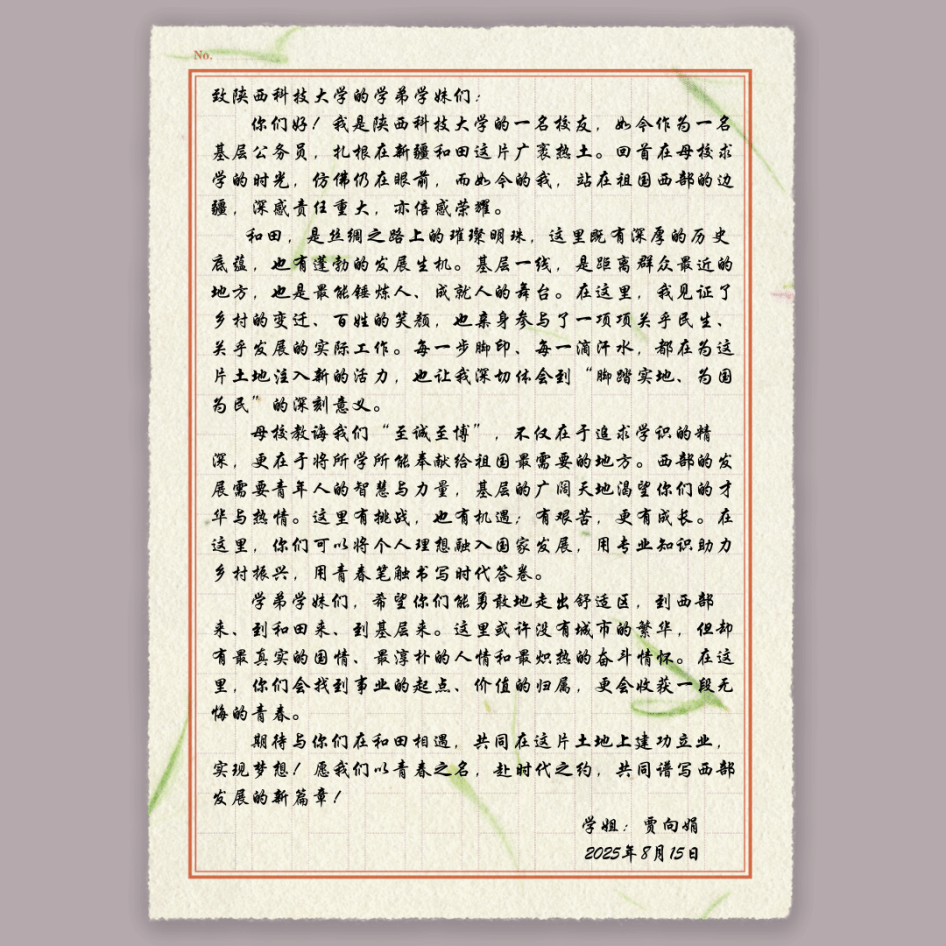 No.
致陕西科技大学的学弟学妹们：
你们好！我是陕西科技大学的一名校友，如今作为一名
基层公务员，扎根在新疆和田这片广袤热土。回首在母校求
学的时光，仿佛仍在眼前，而如今的我，站在祖国西部的边
疆，深感责任重大，亦倍感荣耀。
和田，是丝绸之路上的璀璨明珠，这里既有深厚的历史
底蕴，也有蓬勃的发展生机。基层一线，是距离群众最近的
地方，也是最能锤炼人、成就人的舞台。在这里，我见证了
乡村的变迁、百姓的笑颜，也亲身参与了一项项关乎民生、
关乎发展的实际工作。每一步脚印、每一滴汗水，都在为这
片土地注入新的活力，也让我深切体会到“脚踏实地、为国
为民”的深刻意义。
母校教诲我们“至诚至博”，不仅在于追求学识的精
深，更在于将所学所能奉献给祖国最需要的地方。西部的发
展需要青年人的智慧与力量，基层的广阔天地渴望你们的才
华与热情。这里有挑战，也有机遇；有艰苦，更有成长。在
这里，你们可以将个人理想融入国家发展，用专业知识助力
乡村振兴，用青春笔触书写时代答卷。
学弟学妹们，希望你们能勇敢地走出舒适区，到西部
来、到和田来、到基层来。这里或许没有城市的繁华，但却
有最真实的国情、最淳朴的人情和最炽热的奋斗情怀。在这
里，你们会找到事业的起点、价值的归属，更会收获一段无
悔的青春。
期待与你们在和田相遇，共同在这片土地上建功立业，
实现梦想！愿我们以青春之名，赴时代之约，共同谱写西部
发展的新篇章！
学姐：贾向娟
2025年8月15日